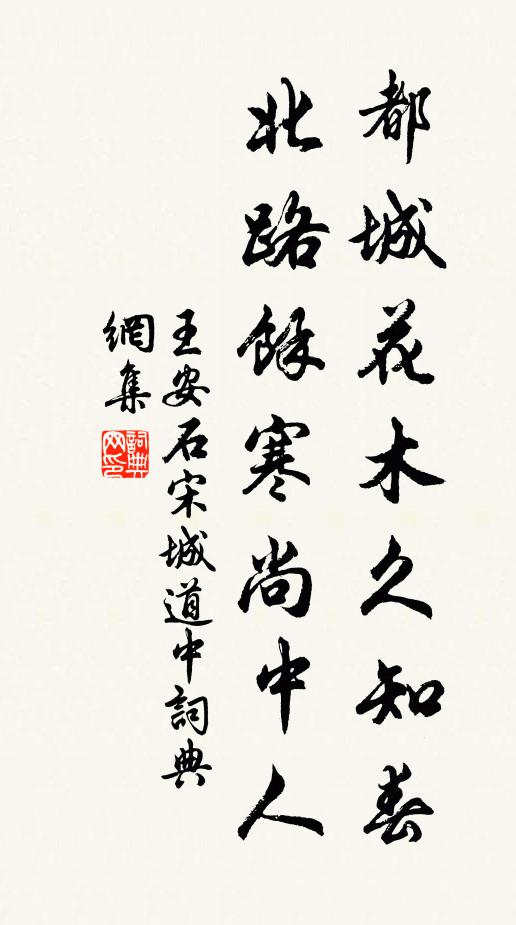 都城花木久知春
北路餘寒尚中人
王安石宋城道中詞典
網集
詞典网印